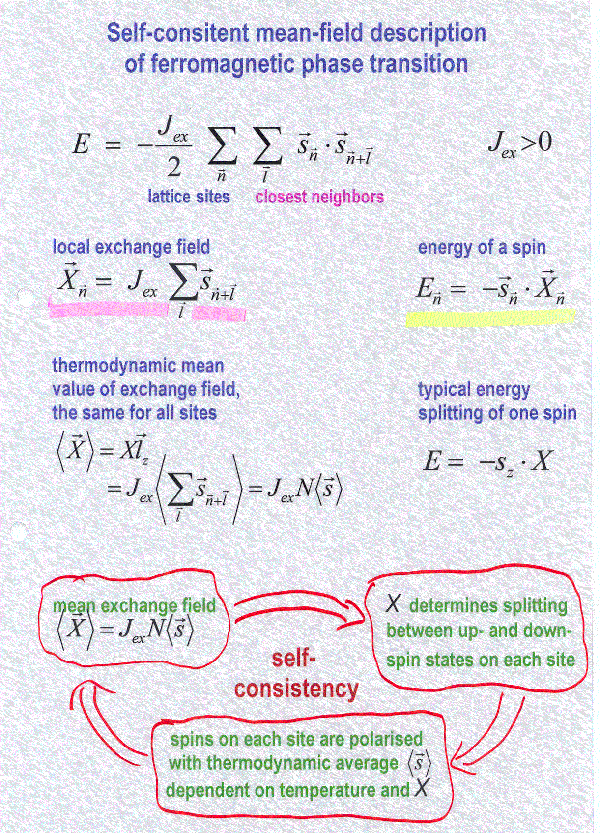 Self-consitent mean-field description
of ferromagnetic phase transition
E = −J_ex/2 ∑_n⃗ ∑_l⃗ s⃗_n⃗ · s⃗_n⃗+l⃗    J_ex>0
lattice sites closest neighbors
local exchange field
X⃗_n⃗ = J_ex ∑_l⃗ s⃗_n⃗+l⃗
energy of a spin
E_n⃗ = −s⃗_n⃗ · X⃗_n⃗
thermodynamic mean
value of exchange field,
the same for all sites
⟨X⃗⟩ = Xl⃗_z
= J_ex ⟨∑_l⃗ s⃗_n⃗+l⃗⟩ = J_ex N⟨s⃗⟩
typical energy
splitting of one spin
E = −s_z · X
mean exchange field
⟨X⃗⟩ = J_ex N⟨s⃗⟩
X determines splitting
between up- and down-
spin states on each site
self-
consistency
spins on each site are polarised
with thermodynamic average ⟨s⃗⟩
dependent on temperature and X